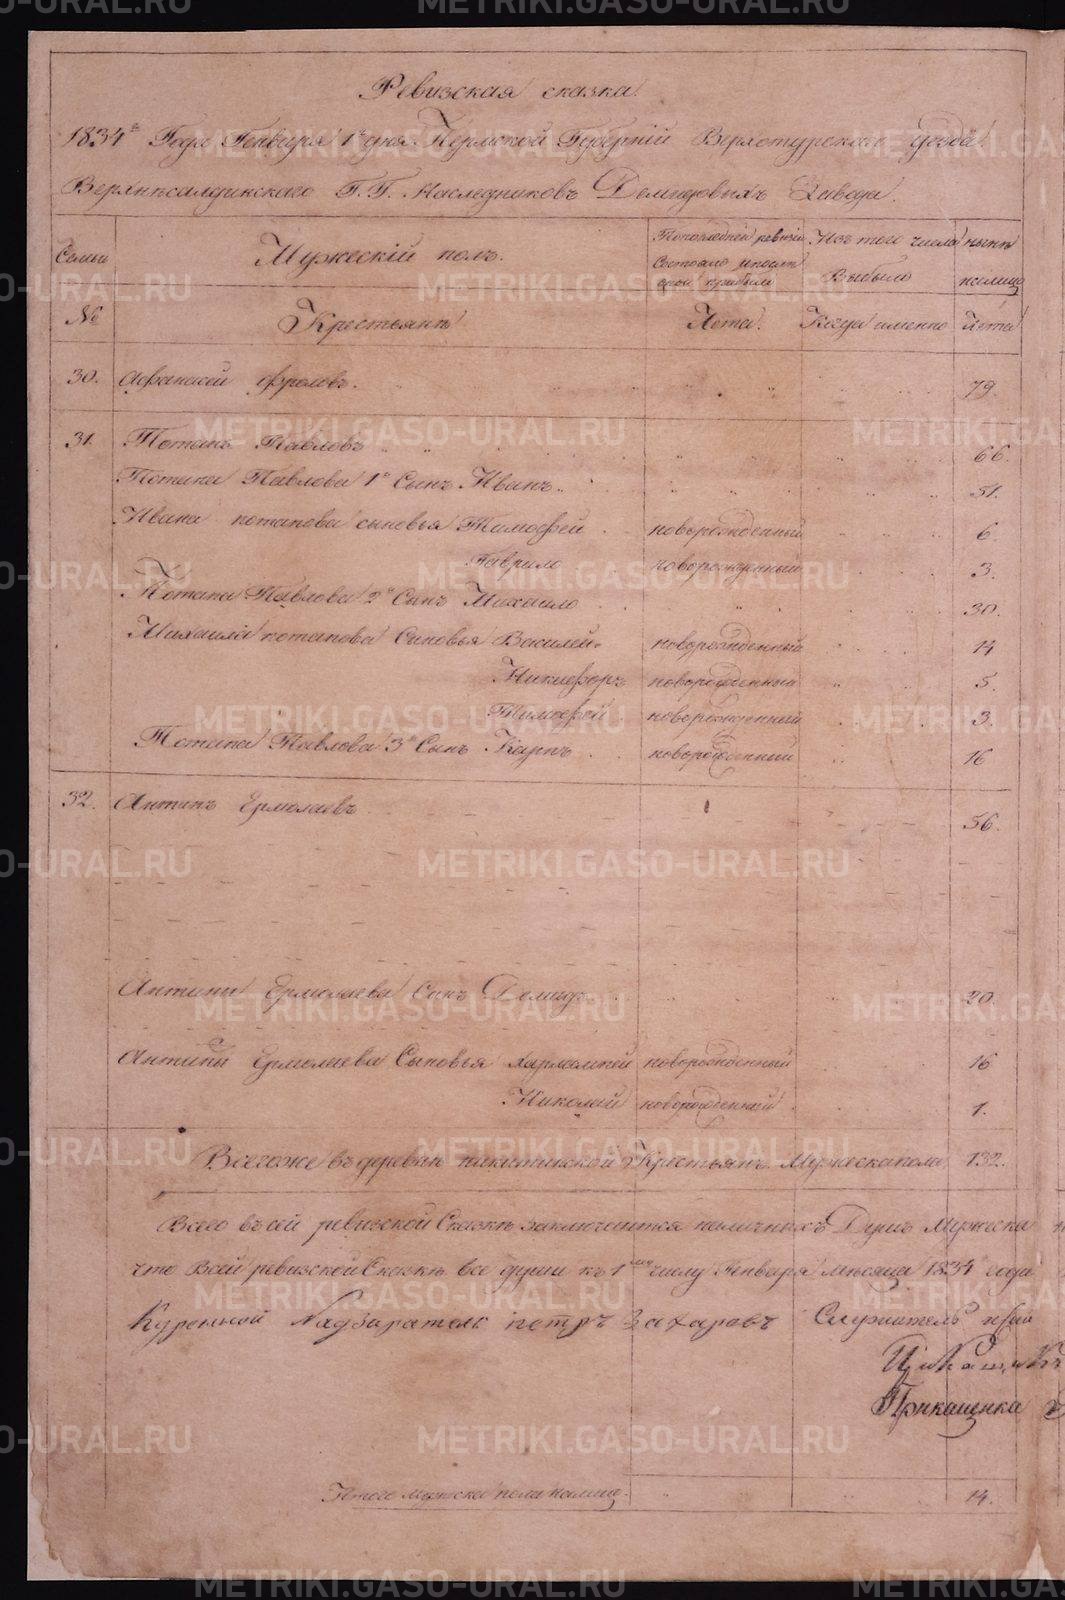 Ревизская сказка.
1834го Года Генваря 1го дня Пермской Губернiи Верхотурскаго уезда
Верхнесалдинскаго Г.Г. Наследниковъ Демидовыхъ Завода.
Семьи Мужескiй полъ. По последней ревизiи состояло и после оной прибыло Изъ того числа Выбыло ныне налицо
№ Крестьяне Лета. Когда именно Лета
30. Афанасей Фроловъ. 79.
31. Потапъ Павловъ 66.
Потапа Павлова 1й Сынъ Иванъ. 51.
Ивана потапова сыновья Тимофей новорожденный 6.
Гаврило новорожденный 3.
Потапа Павлова 2й Сынъ Михайло 30.
Михайла потапова Сыновья Василей новорожденный 14
Никифоръ новорожденный 5.
Тимофей новорожденный 3.
Потапа Павлова 3й Сынъ Карпъ новорожденный 16
32. Антипъ Ермолаевъ 56.
Антипы Ермолаева Сынъ Демидъ 20.
Антипы Ермолаева Сыновья Харлампей новорожденный 16
Николай новорожденный 1.
Всегоже въ деревне никитинской Крестьянъ Мужеска пола 132.
Всего въ сей ревизской Сказке заключается наличныхъ Душъ Мужеска
что Всей ревизской Сказке все души къ 1му числу Генваря месяца 1834 года
Куренной Надзиратель петръ Захаровъ Служитель
Прикащика
Итого мужска пола налицо. 14.
METRIKI.GASO-URAL.RU